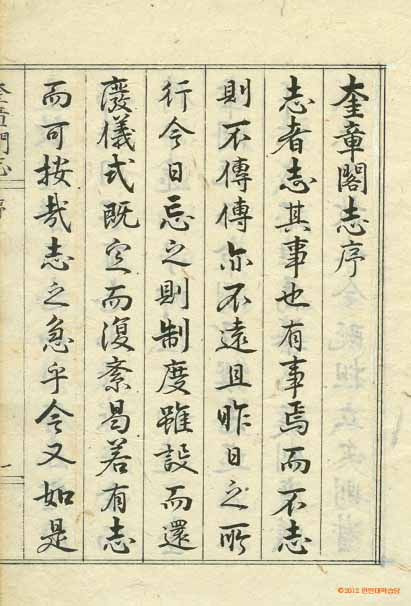 奎章閣志序
志者志其事也有事焉而不志
則不傳傳亦不遠且昨日之所
行今日忘之則制度雖設而還
廢儀式既定而復紊曷若有志
而可按哉志之急乎今又如是
奎章閣志 序 一
©2012 한한대학습당